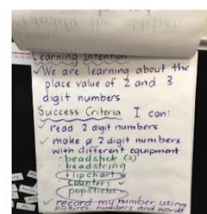 Learning Intention
We are learning about the
place value of 2 and 3
digit numbers
Success Criteria I can:
✓ read 2 digit numbers
✓ make a 2 digit numbers
with different equipment
· beadstick (2)
· beadstring
flipchart
counters
popsticks
✓ record my number using
pictures, numbers and words